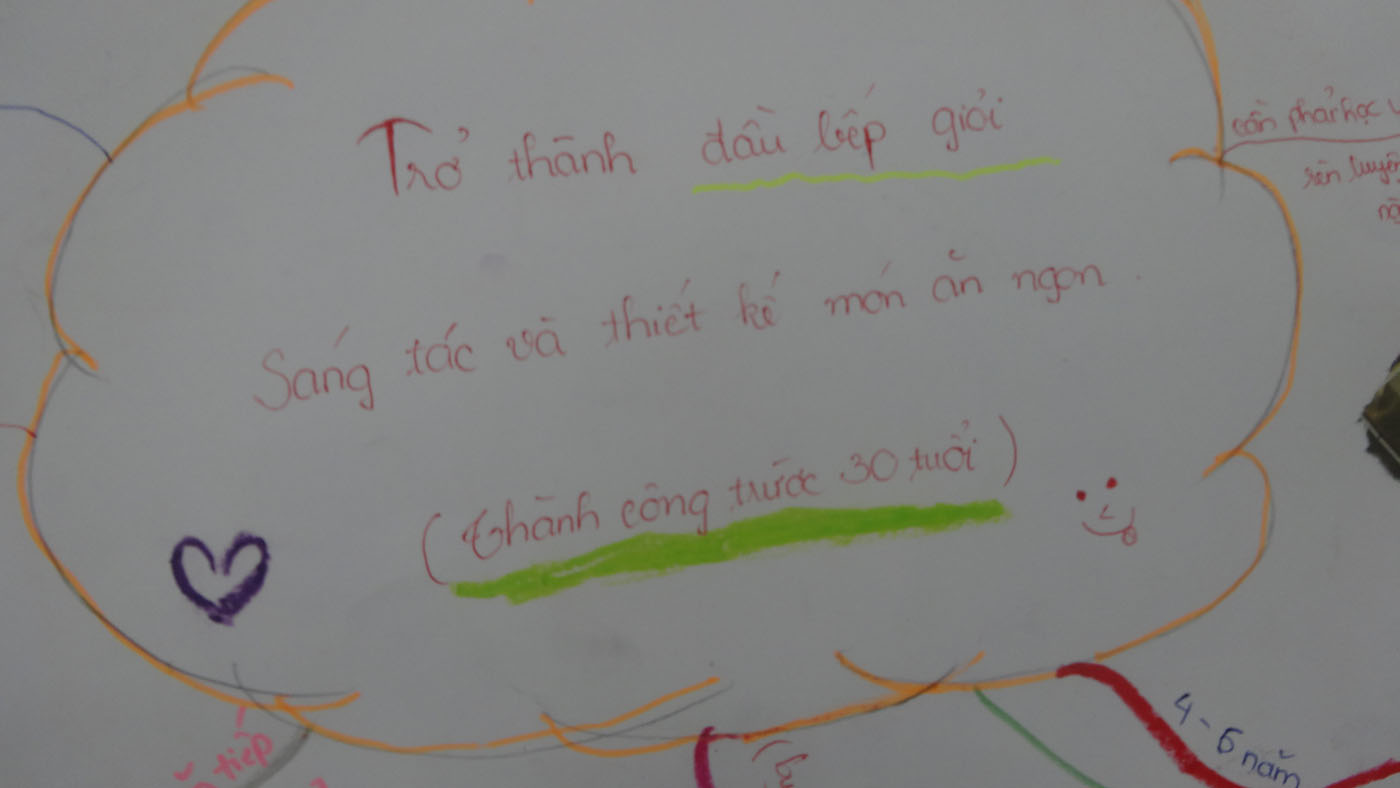 Trở thành đầu bếp giỏi
Sáng tác và thiết kế món ăn ngon.
(Thành công trước 30 tuổi)
cần phải học
rèn luyện
4 - 5 năm
tiếp